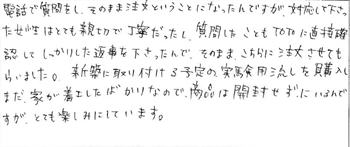 電話で質問をし、そのまま注文ということになったんですが、対応して下さっ
た女性はとても親切で丁寧だったし、質問したこともTOTOに直接確
認してしっかりした返事を下さったんで、そのまま、こちらに注文させても
らいました。新築に取り付ける予定の実験用流しを購入し
まだ、家が着工したばかりなので、商品は開封せずにいるんで
すが、とても楽しみにしています。